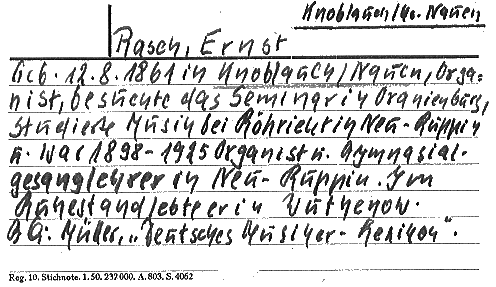 Knoblauch/Kr. Nauen
Rasch, Ernst
Geb. 12.8.1861 in Knoblauch/Nauen, Orga-
nist, besuchte das Seminar in Oranienburg,
studierte Musik bei Röhricht in Neu-Ruppin
u. war 1898-1925 Organist u. Gymnasial-
gesanglehrer in Neu-Ruppin. Im
Ruhestand lebte er in Wuthenow.
Müller, „Deutsches Musiker-Lexikon".
Reg. 10. Stichnote. 1. 50. 237000. A. 803. S. 4062